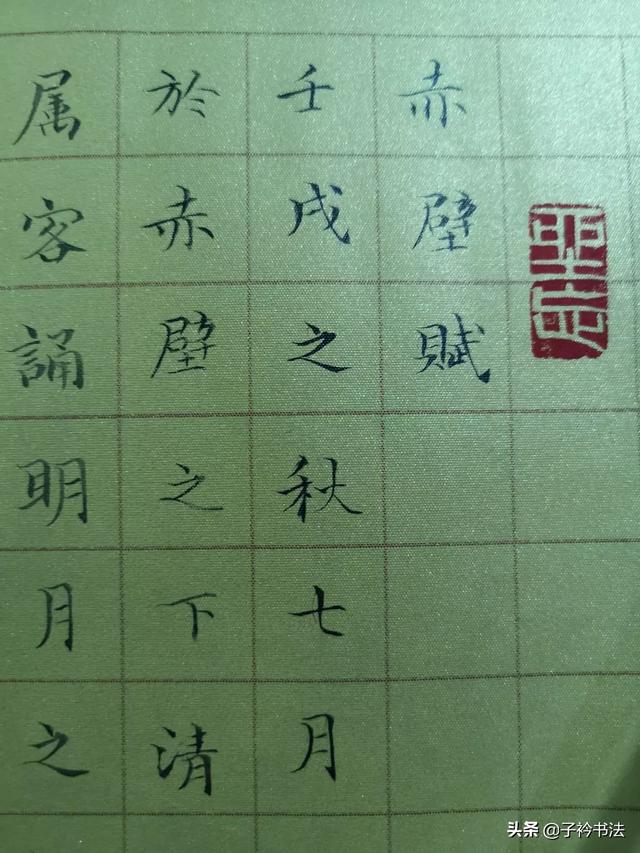 赤壁賦
壬戌之秋七月
於赤壁之下清
属客誦明月之
头条@子衿书法